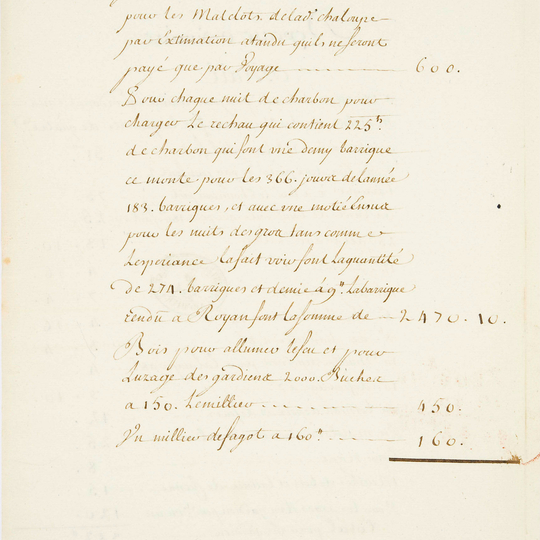 pour les Matelots de lad. chaloupe
par Extimation atandu quils ne seront
payé que par Voyage 600.
Pour chaque nuit de charbon pour
charger Le rechau qui contient 225 lt.
de charbon qui font une demy barrique
ce monte pour les 366. jours de lannée
183. barriques, et avec une motié Ensus
pour les nuits des gros tans comme
Lesperiance la fait voir font La quantité
de 274. barriques et demie à 9 lt. La barrique
rendu a Royan font la somme de 2470. 10.
Bois pour allumer le feu et pour
Luzage des gardiens 2000. Buches
a 150. Le millier 450.
Un millier de fagot a 160 lt. 160.